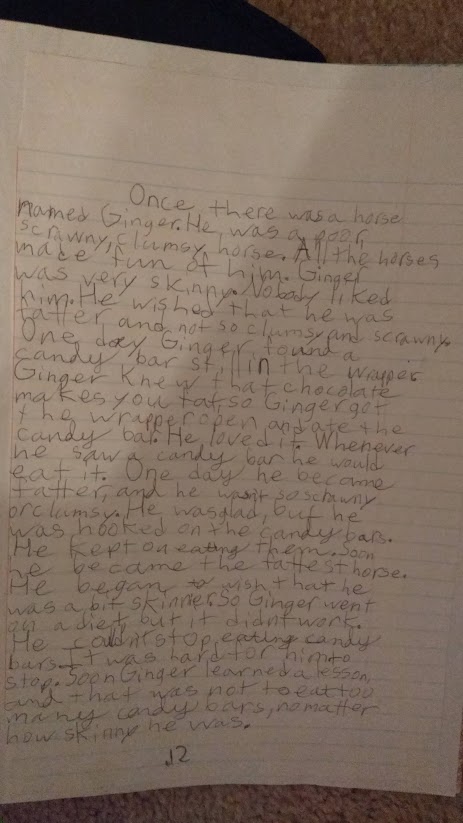 Once there was a horse
named Ginger. He was a poor,
scrawny, clumsy horse. All the horses
made fun of him. Ginger
was very skinny. Nobody liked
him. He wished that he was
fatter and not so clumsy and scrawny.
One day Ginger found a
candy bar still in the wrapper
Ginger knew that chocolate
makes you fat, so Ginger got
the wrapper open and ate the
candy bar. He loved it. Whenever
he saw a candy bar he would
eat it. One day he became
fatter, and he wasn't so scrawny
or clumsy. He was glad, but he
was hooked on the candy bars.
He kept on eating them. Soon
he became the fattest horse.
He began to wish that he
was a bit skinner. So Ginger went
on a diet, but it didnt work.
He couldn't stop eating candy
bars. It was hard for him to
stop. Soon Ginger learned a lesson,
and that was not to eat too
many candy bars, no matter
how skinny he was.
12